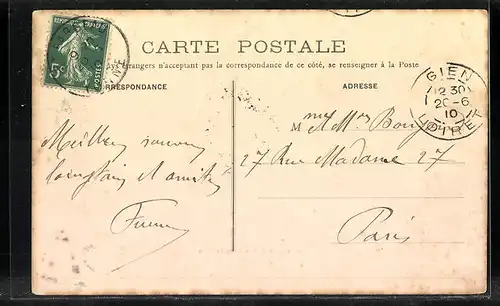 CARTE POSTALE
étrangers n'acceptant pas la correspondance de ce côté, se renseigner à la Poste
RRESPONDANCE
ADRESSE
5c
POSTES
GIEN
12 30
20-6
10
LOIRET
M
27 Rue Madame 27
Paris
Meilleur souvenir
lointain et amitiés